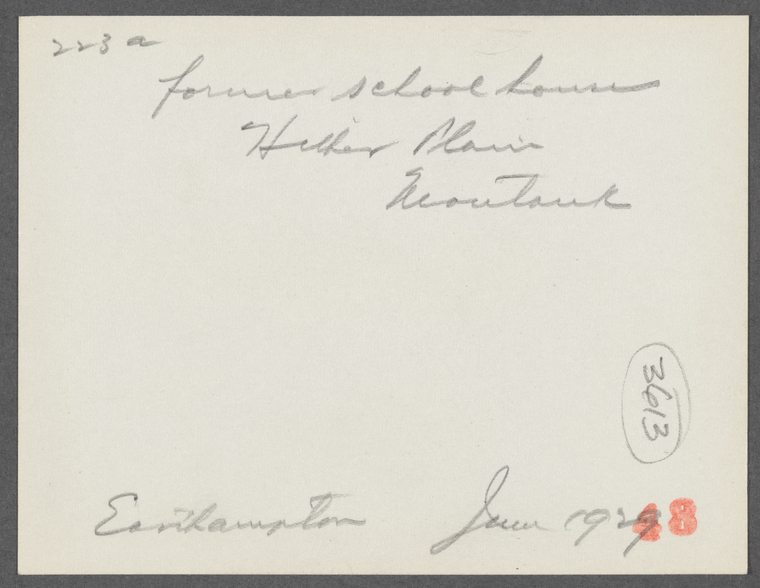 223 a
former school house
Hither Plain
Montauk
3613
Easthampton June 1929
48